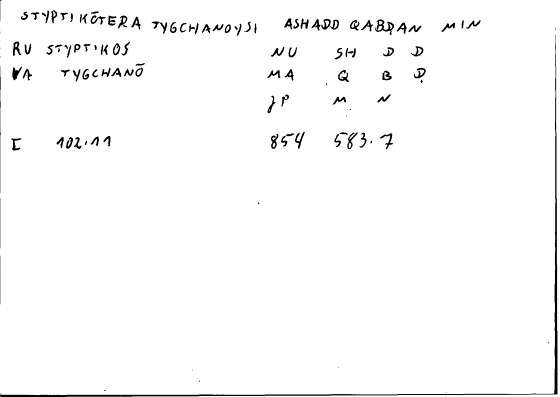 STYPTIKŌTERA TYGCHANOYSI ASHADD QABḌAN MIN
RU STYPTIKOS NU SH D D
VA TYGCHANŌ MA Q B Ḍ
JP M N
I 102.11 854 583.7